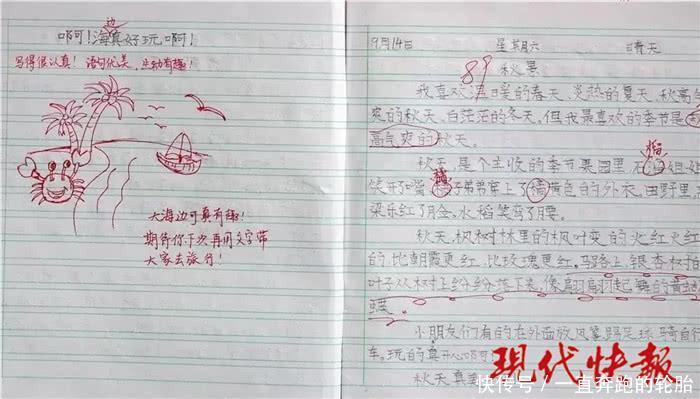 啊!海边真好玩啊!
写得很认真!语句优美,生动有趣!
大海边可真有趣!
期待你下次再用文字带
大家去旅行!
9月14日 星期六 晴天
89
秋景
我喜欢温暖的春天、炎热的夏天、秋高气
爽的秋天、白茫茫的冬天,但我最喜欢的季节是
高气爽的秋天。
秋天是个丰收的季节果园里,石榴姐姐
笑开了嘴,橘子弟弟穿上了橘黄色的外衣,田野里
梁乐红了脸,水稻笑弯了腰。
秋天,枫树林里的枫叶变的火红火红
的,比朝霞更红,比玫瑰更红。马路上,银杏树
叶子从树上纷纷落下来,像翩翩起舞的黄
蝶。
小朋友们有的在外面放风筝、踢足球、骑自行
车。玩的真开心啊
秋天真美
现代快報
快传号/一直奔跑的轮胎